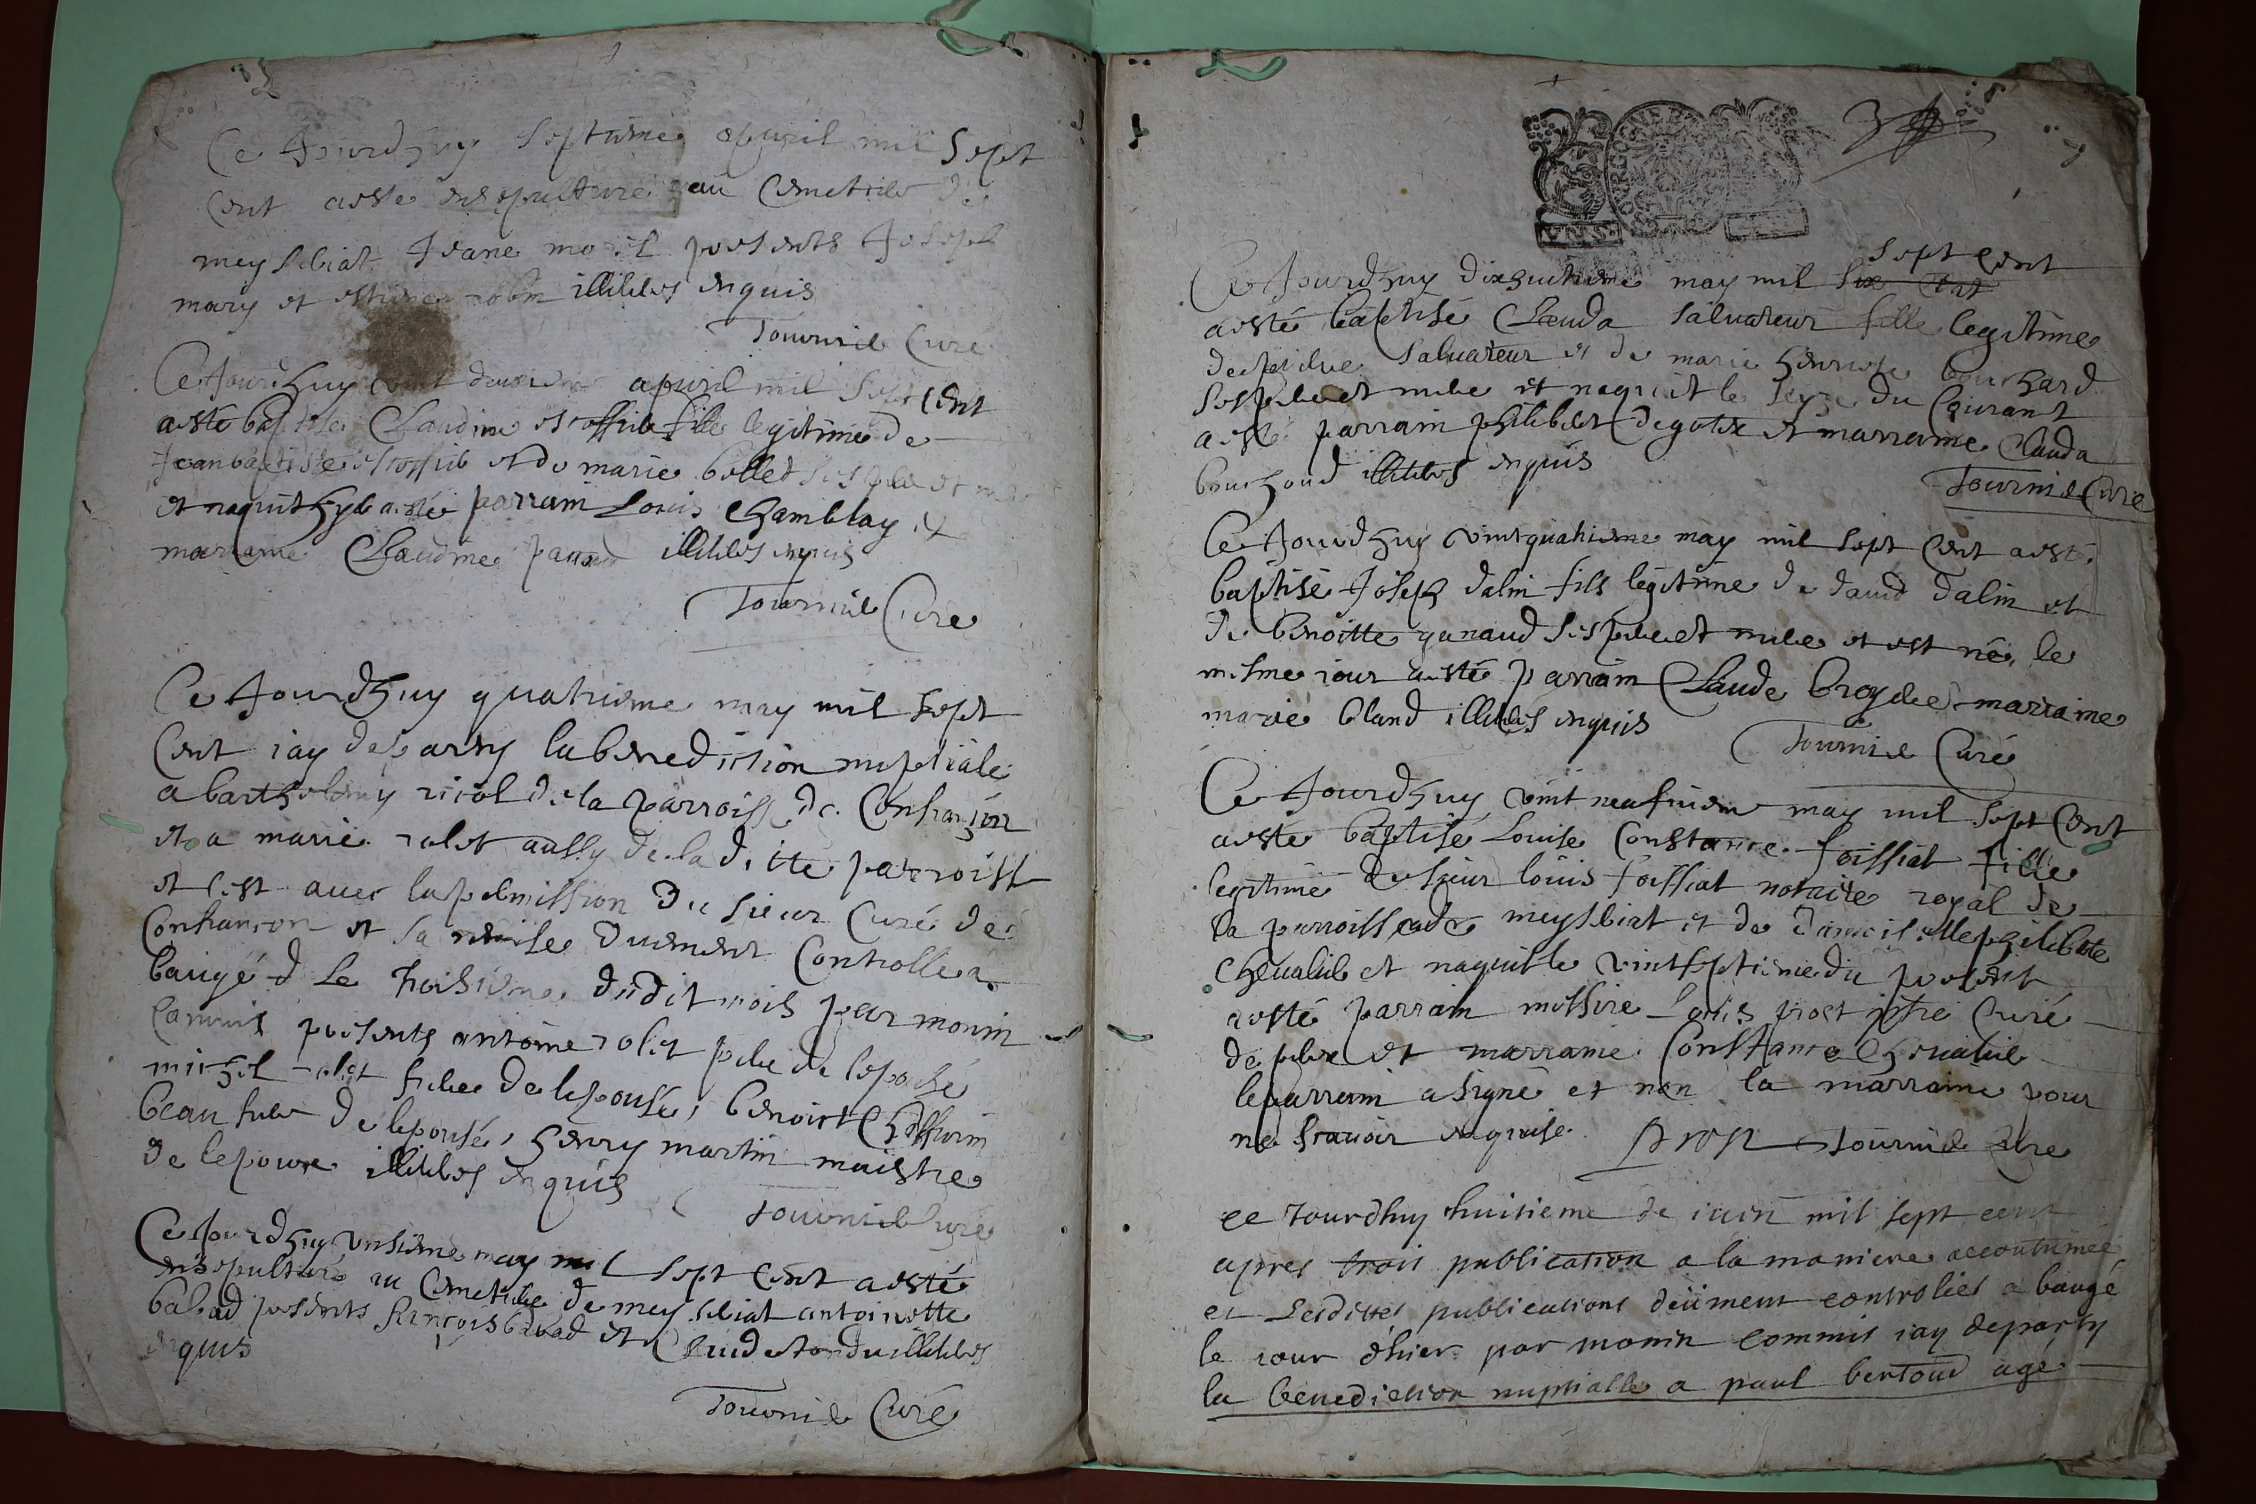 Ce Jourdhuy septieme apuril mil sept
Cent aeste ensepulturé au Cemetiere de
meyseliat Jeane morel presents Joseph
mary et robin illiteres enquis
Tournier Curé
Ce Jourdhuy vint deuxieme apuril mil sept Cent
aeste baptisé Claudine escoffier fille legitime de
Jeanbaptiste escoffier et de marie bolled ses pere et mere
et naquit hyer aesté parrain Louis Chamblay et
marraine Claudine illiteres enquis
Tournier Cure
Ce Jourdhuy quatrieme may mil sept
Cent iay departy la benediction nuptiale
a barthelemy riçol de la parroisse de Confrançon
et a marie rolet aussy de la ditte parroisse
et cest auec la permission du sieur Curé de
Confrançon et sa remise duement Controllé a
baugé d le troisieme dudit mois par monin
Commis presents antoine rolet pere de lepousé
michel rolet frere de lepousé, benoict
beau frere de lepousé, henry martin maistre
de lepoux illiteres enquis
Tournier Curé
Ce Jourdhuy unsieme may mil sept Cent aesté
ensepulturé au Cemetiere de meyseliat antoinette
babad presents François babad et Claude illiteres
enquis
Tournier Curé
3
Ce Jourdhuy dixhuitieme may mil six Cent sept Cent
aesté baptisé Clauda saluateur fille legitime
de saluateur et de marie henriete bouchard
ses pere et mere et naquit le seize du Courant
aesté parrain philibert degote et marraine Clauda
bouchard illiteres enquis
Tournier Cure
Ce Jourdhuy vintquatrieme may mil sept Cent aesté
baptisé Joseph dalin fils legitime de dauid dalin et
de benoitte ganaud ses pere et mere et est né le
mesme iour aesté parrain Claude broyer et marraine
marie bland illiteres enquis
Tournier Curé
Ce Jourdhuy vint neufuieme may mil sept Cent
aesté baptisé Louise Constance foissiat fille
legitime de sieur louis foissiat notaire royal de
la parroisse de meyseliat et de damoiselle philiberte
Cheualier et naquit le vintseptieme du present
aesté parrain messire Louis prost ptre Curé
de et marraine Constance Cheualier
le parrain a signé et non la marraine pour
ne scauoir enquise. Prost Tournier Cure
ce Jourdhuy huitieme de iuin mil sept cent
apres trois publication a la maniere accoutumée
et lesdites publications deüment controlles a baugé
le iour dhier par monin commis iay departy
la benediction nuptialle a paul bertoud agé